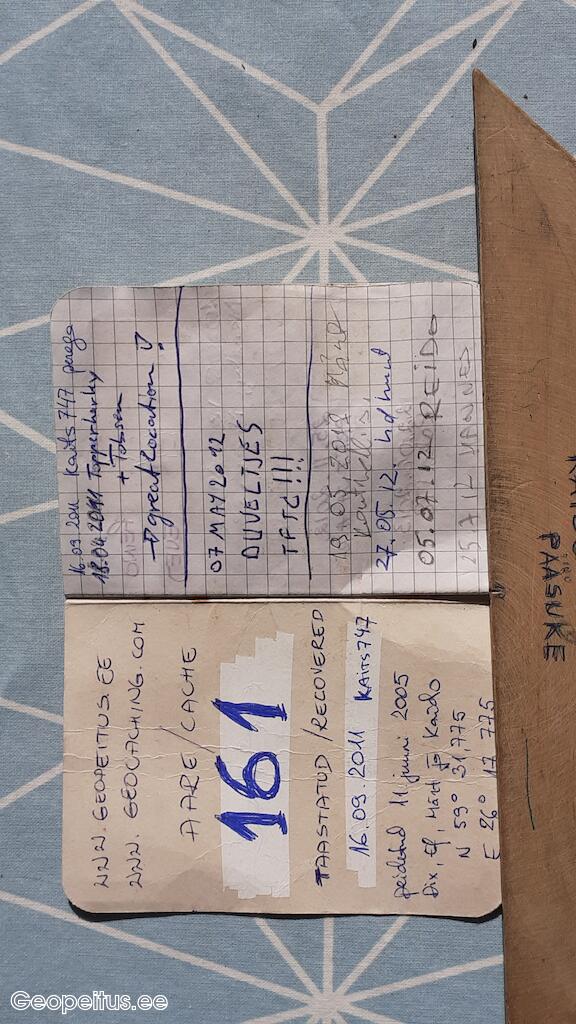 WWW.GEOPEITUS.EE
WWW.GEOCACHING.COM
AARE/CACHE
161
TAASTATUD/RECOVERED
16.09.2011 KAITS747
peidetud 11. juuni 2005
Dix, Ef, Märt ja Kaido
N 59° 31,775
E 26° 17 775
16.09 2011 Kaits747 perega
18.04 2011
+ Tobsen
→ great Location
07 MAY 2012
DUVELTJES
TFTC!!!
19.05.2012
27.05.12.
05.07.12 REIDO
25.7.12 HANNES
PAASUKE
Geopeitus.ee